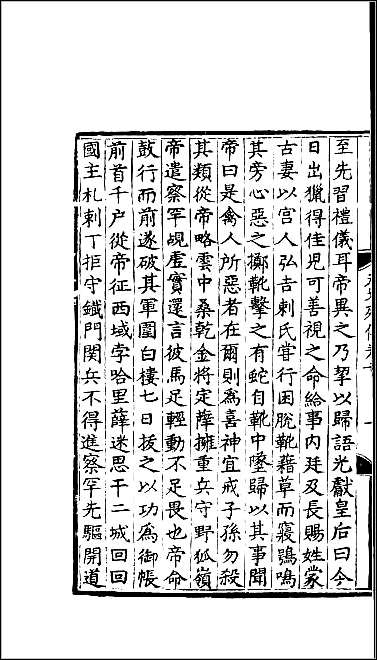 至先習禮儀耳帝異之乃挈以歸語光獻皇后曰今
日出獵得佳兒可善視之命給事內廷及長賜姓蒙
古妻以宮人弘吉剌氏甞行困脫靴藉草而寢鴞鳴
其旁心惡之擲靴擊之有蛇自靴中墜歸以其事聞
帝曰是禽人所惡者在爾則爲喜神宜戒子孫勿殺
其類從帝略雲中桑乾金將定薛擁重兵守野狐嶺
帝遣察罕覘虛實還言彼馬足輕動不足畏也帝命
鼓行而前遂破其軍圍白樓七日拔之以功爲御帳
前首千户從帝征西域孛哈里薛迷思干二城回回
國主札剌丁拒守鐵門関兵不得進察罕先驅開道